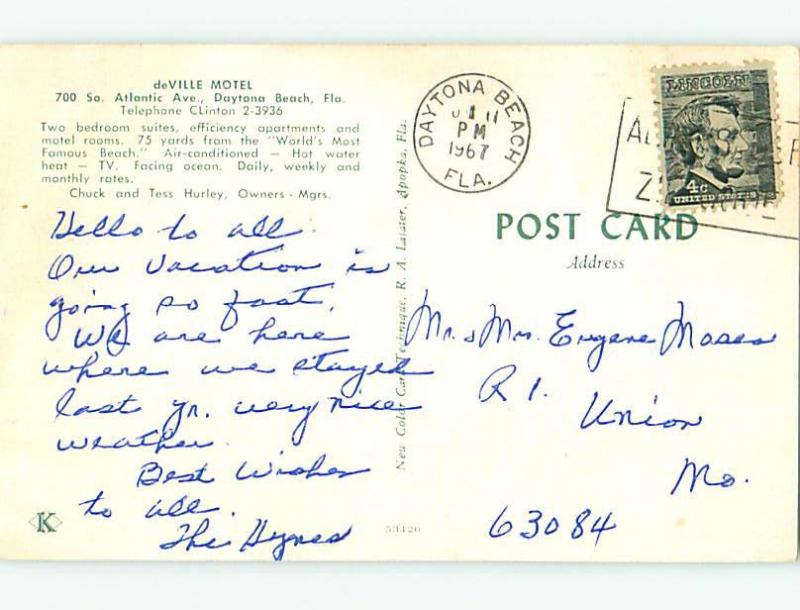 deVILLE MOTEL
700 So. Atlantic Ave., Daytona Beach, Fla.
Telephone CLinton 2-3936
Two bedroom suites, efficiency apartments and
motel rooms. 75 yards from the "World's Most
Famous Beach." Air-conditioned — Hot water
heat — TV. Facing ocean. Daily, weekly and
monthly rates.
Chuck and Tess Hurley, Owners - Mgrs.
Hello to all.
Our vacation is
going so fast.
We are here
where we stayed
last yr. very nice
weather.
Best Wishes
to all.
The Hynes
K
53426
New Color Card Technique, R. A. Apopka, Fla.
DAYTONA BEACH
11
PM
1967
FLA.
LINCOLN
4c
UNITED STATES
POST CARD
Address
Mr. & Mrs. Eugene Moses
R 1.
Union
Mo.
63084